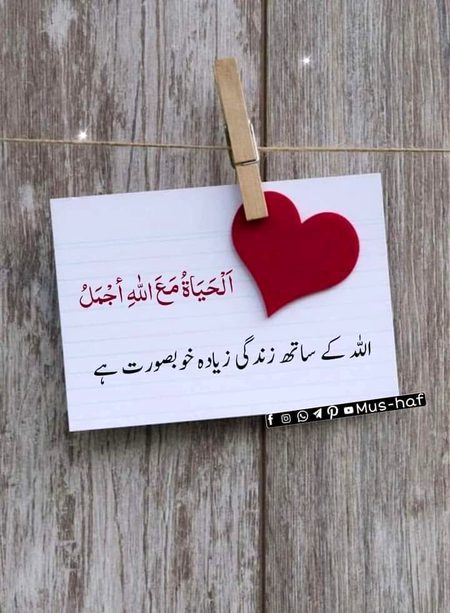 اَلْحَيَاةُ مَعَ اللّٰهِ أجْمَلُ
اللہ کے ساتھ زندگی زیادہ خوبصورت ہے
Mus-haf